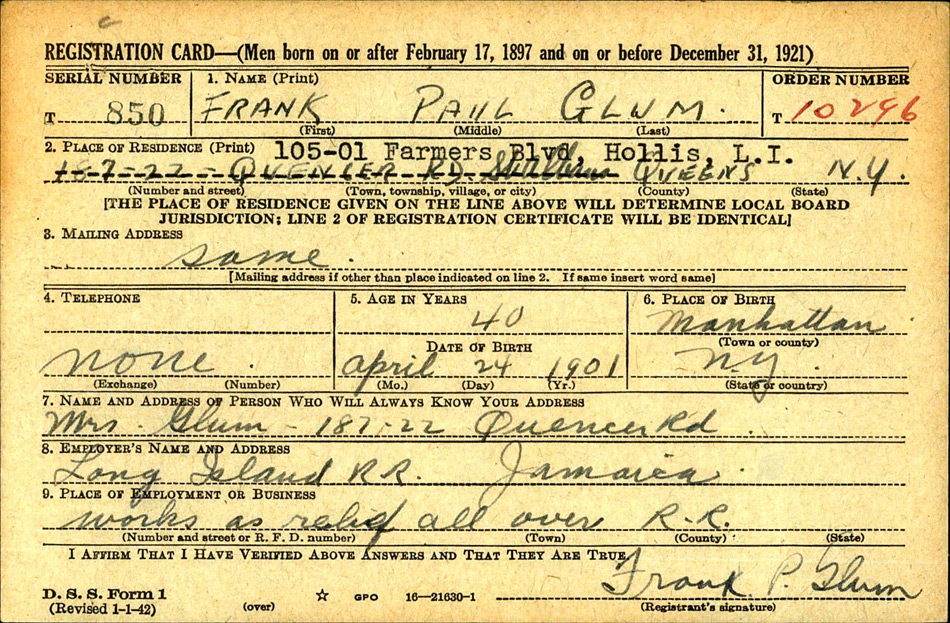 REGISTRATION CARD—(Men born on or after February 17, 1897 and on or before December 31, 1921)
SERIAL NUMBER 1. NAME (Print) ORDER NUMBER
T 850 FRANK PAUL GLUM. T 10296
(First) (Middle) (Last)
2. PLACE OF RESIDENCE (Print) 105-01 Farmers Blvd, Hollis, L.I.
187-22 QUENCER RD. QUEENS N.Y.
(Number and street) (Town, township, village, or city) (County) (State)
[THE PLACE OF RESIDENCE GIVEN ON THE LINE ABOVE WILL DETERMINE LOCAL BOARD
JURISDICTION; LINE 2 OF REGISTRATION CERTIFICATE WILL BE IDENTICAL]
3. MAILING ADDRESS
same.
[Mailing address if other than place indicated on line 2. If same insert word same]
4. TELEPHONE 5. AGE IN YEARS 6. PLACE OF BIRTH
40 Manhattan
DATE OF BIRTH (Town or county)
none. April 24 1901 NY.
(Exchange) (Number) (Mo.) (Day) (Yr.) (State or country)
7. NAME AND ADDRESS OF PERSON WHO WILL ALWAYS KNOW YOUR ADDRESS
Mrs. Glum - 187-22 Quencer Rd.
8. EMPLOYER'S NAME AND ADDRESS
Long Island RR. Jamaica.
9. PLACE OF EMPLOYMENT OR BUSINESS
works as relief all over R.R.
(Number and street or R. F. D. number) (Town) (County) (State)
I AFFIRM THAT I HAVE VERIFIED ABOVE ANSWERS AND THAT THEY ARE TRUE.
Frank P. Glum
D. S. S. Form 1
(Revised 1-1-42) (over) ☆ GPO 16—21630-1 (Registrant's signature)